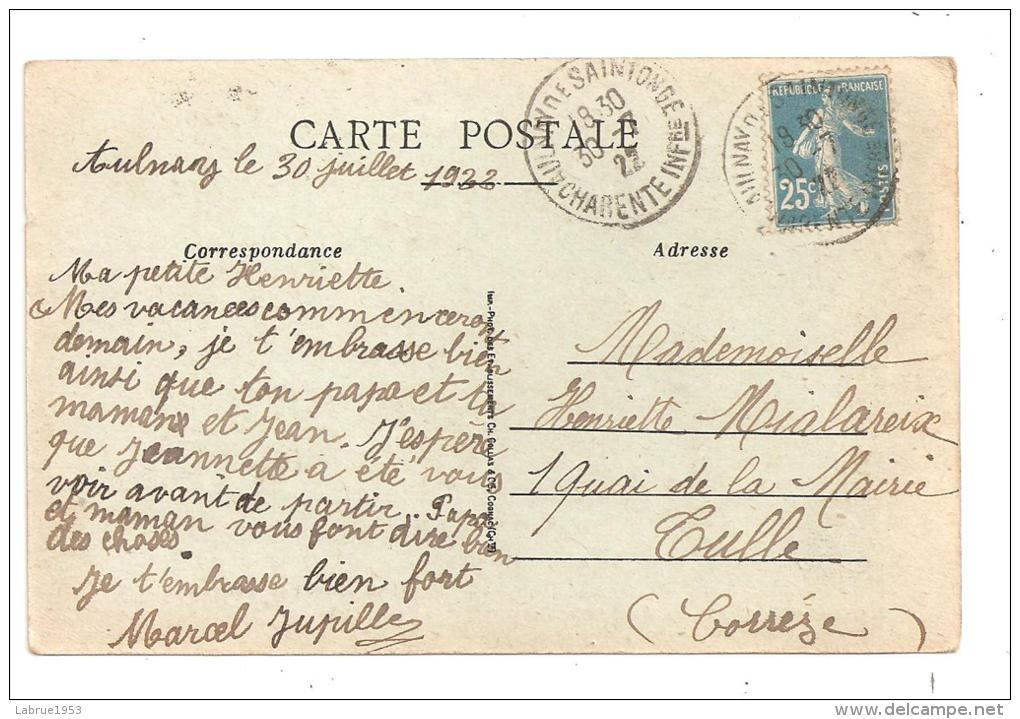 CARTE POSTALE
AULNAY DE SAINTONGE
18 30
30 -7
22
CHARENTE INFRE
REPUBLIQUE FRANÇAISE
25c
POSTES
Aulnay le 30 juillet 1922
Correspondance
Adresse
Ma petite Henriette.
Mes vacances commenceront
demain, je t'embrasse bien
ainsi que ton papa et ta
maman et Jean. J'espère
que Jeannette a été vous
voir avant de partir. Papa
et maman vous font dire bien
des choses
Je t'embrasse bien fort
Marcel Jupille
IMP.-PHOT. DES ETABLISSEMENTS CH. COLLAS & CIE, COGNAC
Mademoiselle
Henriette Mialareix
1 Quai de la Mairie
Tulle
(Corrèze)
Labrue1953